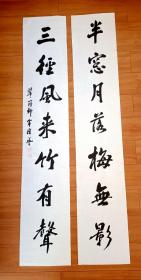 半窓月落梅無影
三徑風来竹有聲